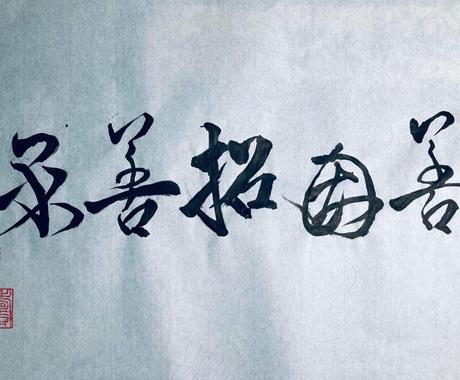 善因招善果